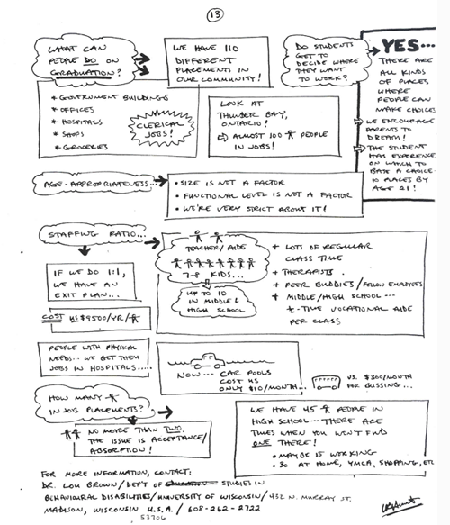 13
WHAT CAN
PEOPLE DO ON
GRADUATION?
WE HAVE 110
DIFFERENT
PLACEMENTS IN
OUR COMMUNITY!
DO STUDENTS
GET TO
DECIDE WHERE
THEY WANT
TO WORK?
YES...
THERE ARE
ALL KINDS
OF PLACES,
WHERE
PEOPLE CAN
MAKE CHOICES
WE ENCOURAGE
PARENTS TO
DREAM!
THE STUDENT
HAS EXPERIENCE
ON WHICH TO
BASE A CHOICE
10 PLACES BY
AGE 21!
* GOVERNMENT BUILDINGS
* OFFICES
* HOSPITALS
* SHOPS
* GROCERIES
CLERICAL
JOBS!
LOOK AT
THUNDER BAY,
ONTARIO!
ALMOST 100 PEOPLE
IN JOBS!
AGE-APPROPRIATENESS...
• SIZE IS NOT A FACTOR
• FUNCTIONAL LEVEL IS NOT A FACTOR
• WE'RE VERY STRICT ABOUT IT!
STAFFING RATIO...
TEACHER/AIDE
7-8 KIDS...
UP TO 10
IN MIDDLE &
HIGH SCHOOL
+ LOTS OF REGULAR
CLASS TIME
+ THERAPISTS
+ PEER BUDDIES/
+ MIDDLE/HIGH SCHOOL...
-TIME VOCATIONAL AIDE
PER CLASS
IF WE DO 1:1,
WE HAVE AN
EXIT PLAN...
COST $9500/YR/
PEOPLE WITH PHYSICAL
NEEDS... WE GET THEM
JOBS IN HOSPITALS...
NOW... CAR POOLS
COST US
ONLY $10/MONTH...
VS. $300/MONTH
FOR BUSSING...
HOW MANY
IN JOB PLACEMENTS?
NO MORE THAN TWO.
THE ISSUE IS ACCEPTANCE/
ABSORPTION!
WE HAVE 45 PEOPLE IN
HIGH SCHOOL... THERE ARE
TIMES WHEN YOU WON'T FIND
ONE THERE!
• MAYBE 15 WORKING
• 30 AT HOME, YMCA, SHOPPING, ETC
FOR MORE INFORMATION, CONTACT:
DR. LOU BROWN/DEPT OF STUDIES IN
BEHAVIOURAL DISABILITIES/UNIVERSITY OF WISCONSIN/432 N. MURRAY ST.
MADISON, WISCONSIN U.S.A. / 608-262-2722
53706